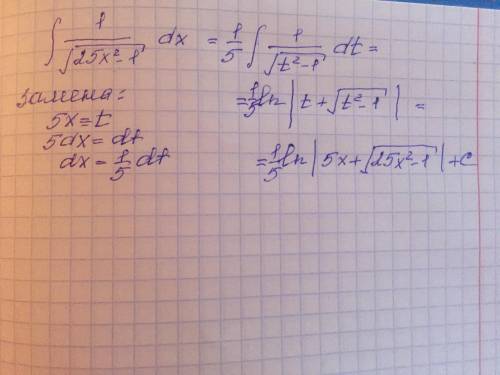 ∫ 1/√(25x²-1) dx = 1/5 ∫ 1/√(t²-1) dt =
замена:
5x=t
5dx=dt
dx=1/5 dt
=1/5 ln|t+√(t²-1)| =
=1/5 ln|5x+√(25x²-1)|+c